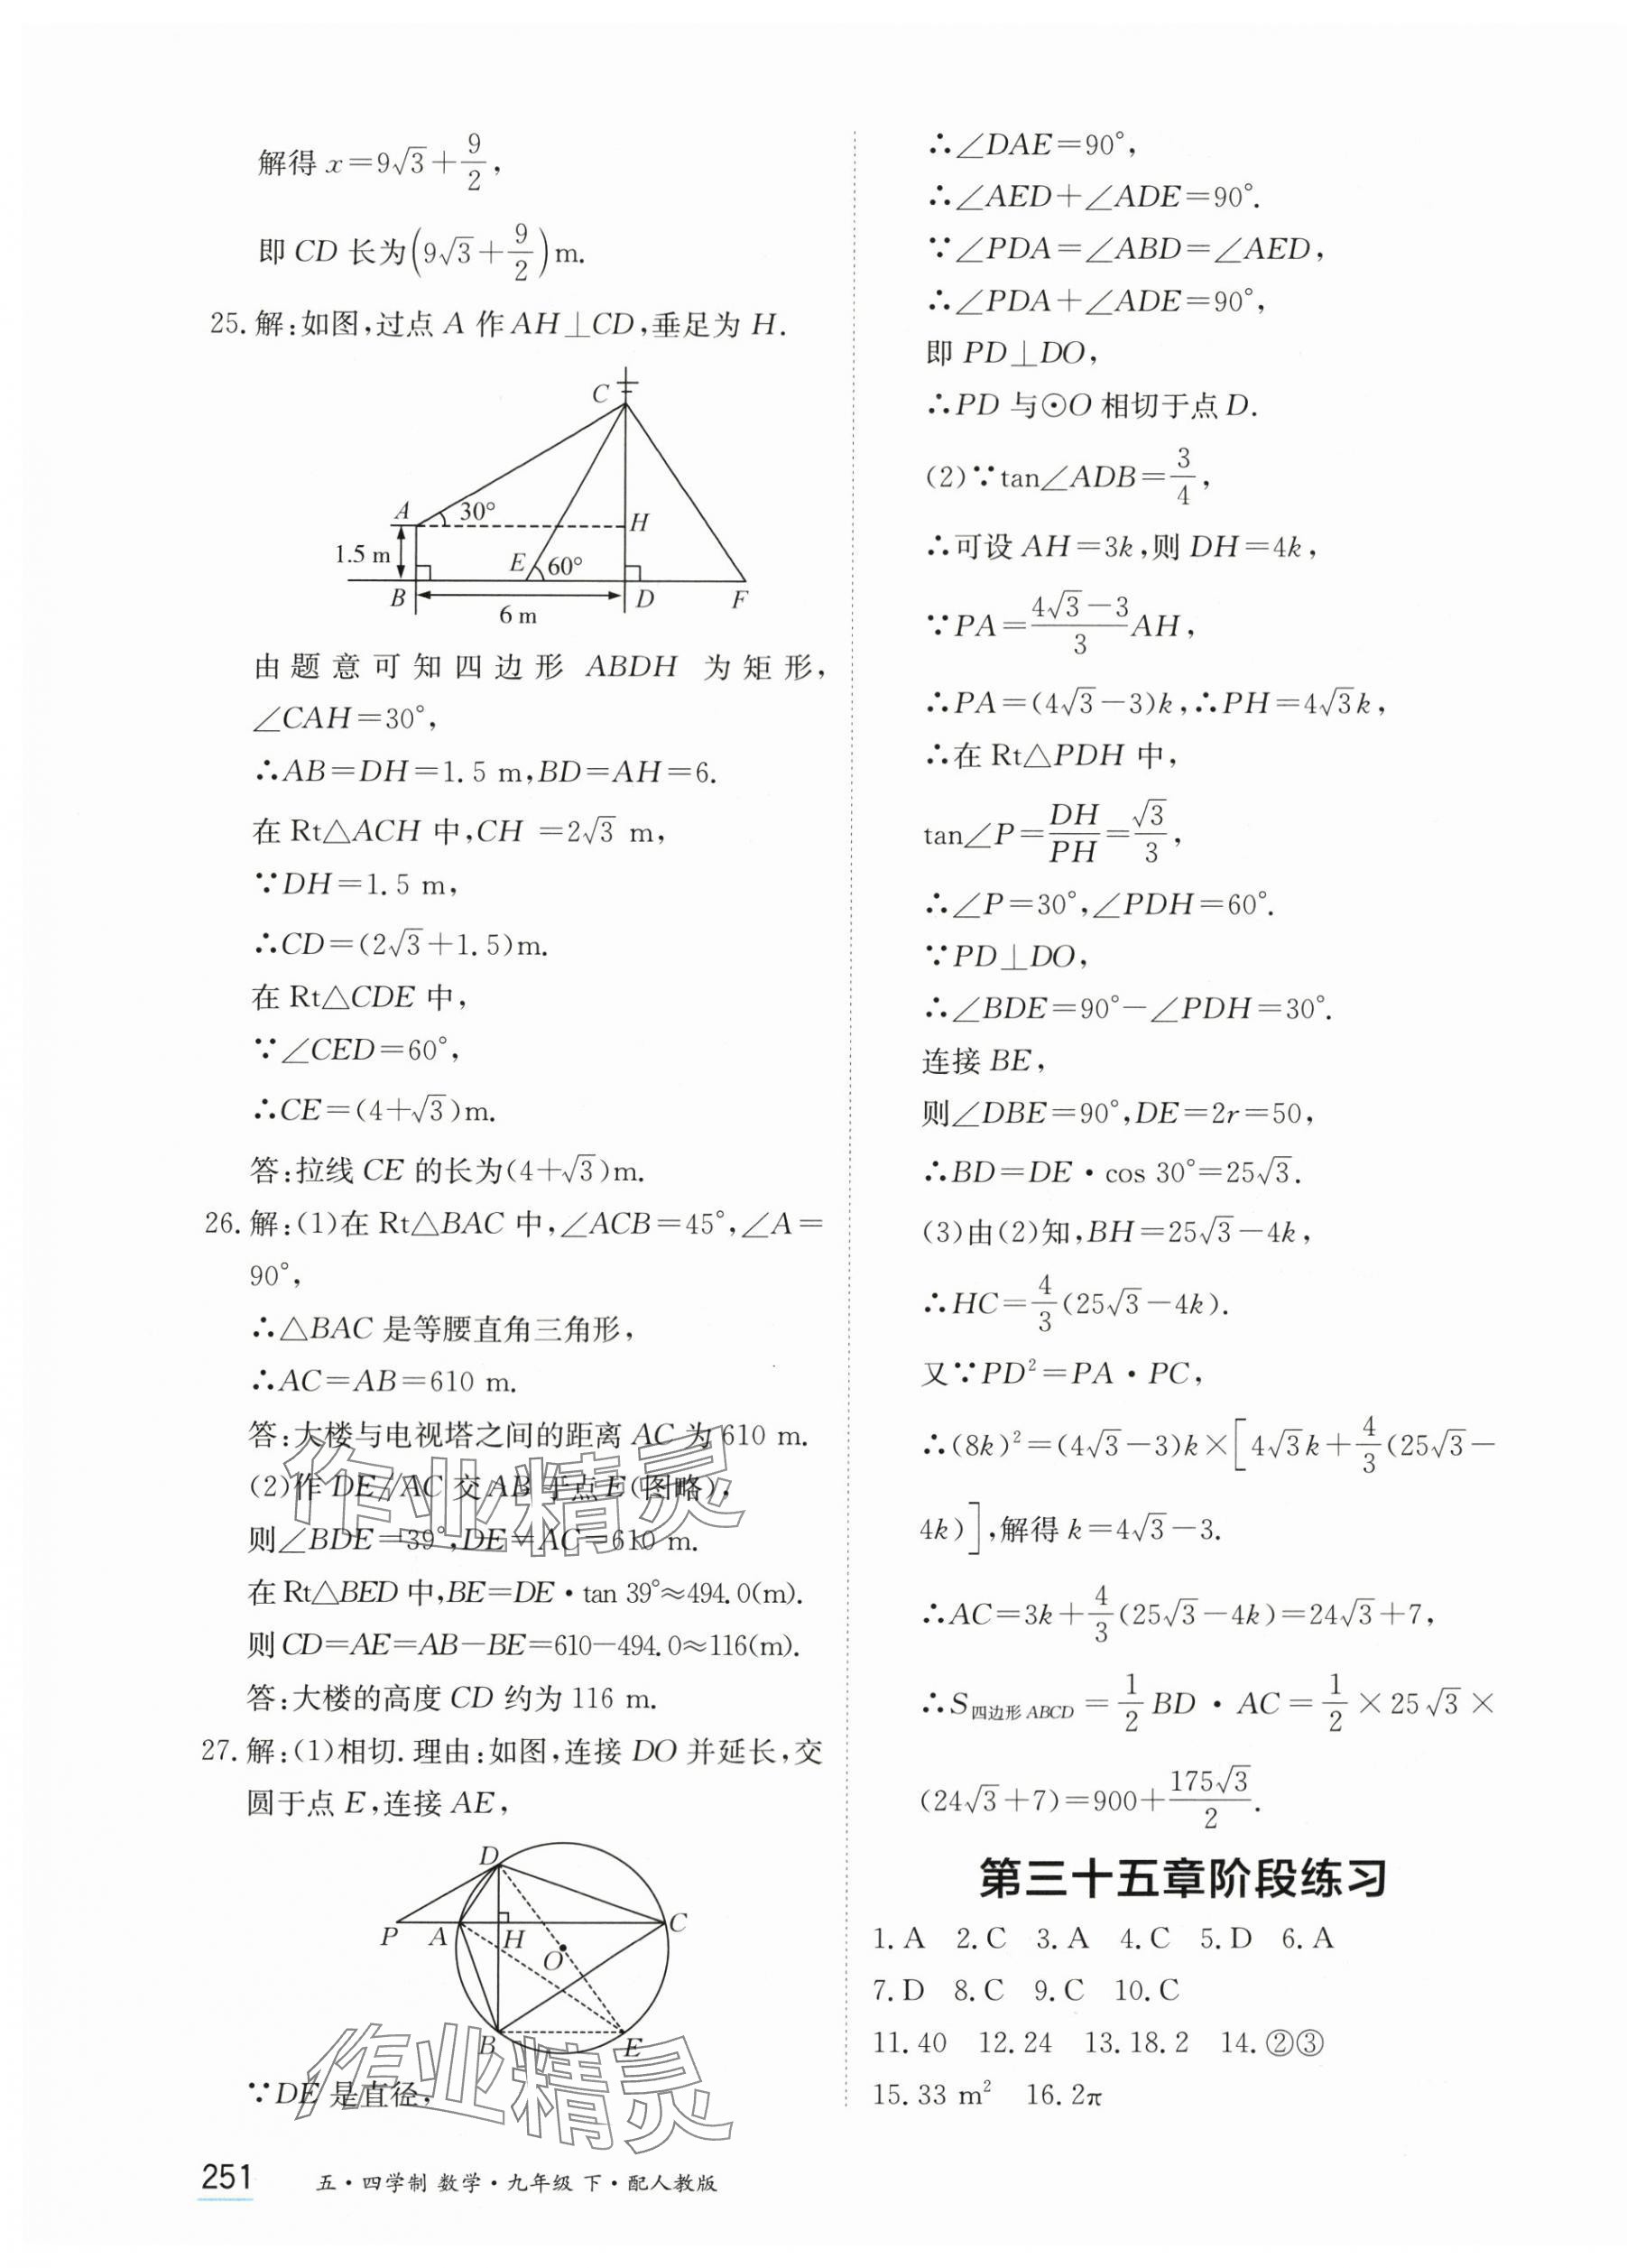 解得 x=9√3+9/2,
即 CD 长为(9√3+9/2)m.
25. 解:如图,过点 A 作 AH⊥CD,垂足为 H.
C
A 30° H
1.5 m E 60°
B D F
6 m
由题意可知四边形 ABDH 为矩形,
∠CAH=30°,
∴AB=DH=1.5 m,BD=AH=6.
在 Rt△ACH 中,CH =2√3 m,
∵DH=1.5 m,
∴CD=(2√3+1.5)m.
在 Rt△CDE 中,
∵∠CED=60°,
∴CE=(4+√3)m.
答:拉线 CE 的长为(4+√3)m.
26. 解:(1)在 Rt△BAC 中,∠ACB=45°,∠A=
90°,
∴△BAC 是等腰直角三角形,
∴AC=AB=610 m.
答:大楼与电视塔之间的距离 AC 为 610 m.
(2)作 DE∥AC 交 AB 于点 E(图略),
则∠BDE=39°,DE=AC=610 m.
在 Rt△BED 中,BE=DE·tan 39°≈494.0(m).
则 CD=AE=AB-BE=610-494.0≈116(m).
答:大楼的高度 CD 约为 116 m.
27. 解:(1)相切.理由:如图,连接 DO 并延长,交
圆于点 E,连接 AE,
D
P A H C
O
B E
∵DE 是直径,
作业精灵
作业精灵
∴∠DAE=90°,
∴∠AED+∠ADE=90°.
∵∠PDA=∠ABD=∠AED,
∴∠PDA+∠ADE=90°,
即 PD⊥DO,
∴PD 与⊙O 相切于点 D.
(2)∵tan∠ADB=3/4,
∴可设 AH=3k,则 DH=4k,
∵PA=(4√3-3)/3 AH,
∴PA=(4√3-3)k,∴PH=4√3k,
∴在 Rt△PDH 中,
tan∠P=DH/PH=√3/3,
∴∠P=30°,∠PDH=60°.
∵PD⊥DO,
∴∠BDE=90°-∠PDH=30°.
连接 BE,
则∠DBE=90°,DE=2r=50,
∴BD=DE·cos 30°=25√3.
(3)由(2)知,BH=25√3-4k,
∴HC=4/3(25√3-4k).
又∵PD²=PA·PC,
∴(8k)²=(4√3-3)k×[4√3k+4/3(25√3-
4k)],解得 k=4√3-3.
∴AC=3k+4/3(25√3-4k)=24√3+7,
∴S四边形ABCD=1/2 BD·AC=1/2×25√3×
(24√3+7)=900+175√3/2.
第三十五章阶段练习
1. A 2. C 3. A 4. C 5. D 6. A
7. D 8. C 9. C 10. C
11. 40 12. 24 13. 18.2 14. ②③
15. 33 m² 16. 2π
251 五·四学制 数学·九年级 下·配人教版